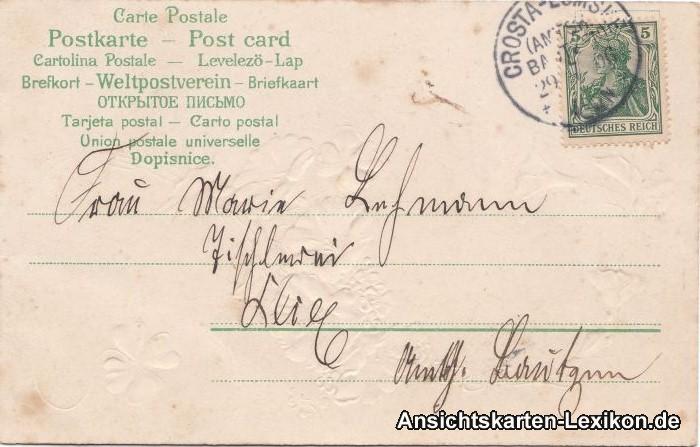 Carte Postale
Postkarte — Post card
Cartolina Postale — Levelező-Lap
Brefkort – Weltpostverein – Briefkaart
ОТКРЫТОЕ ПИСЬМО
Tarjeta postal — Carto postal
Union postale universelle
Dopisnice.
CROSTA-LOMSKE
(AMTSH.
29
5 5
DEUTSCHES REICH
Frau Marie Lehmann
Tischlerei
Klix
Amtsh. Bautzen
Ansichtskarten-Lexikon.de